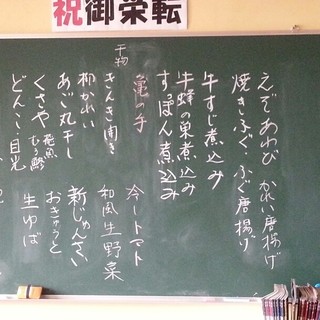 祝御栄転
えぞあわび かれい唐揚げ
焼きふぐ・ふぐ唐揚げ
牛すじ煮込み
牛蜂の巣煮込み
すっぽん煮込み
亀の手 冷トマト
干物
きんき開き 和風生野菜
柳かれい 新じゅんさい
あご丸干し おきゅうと
くさや 飛魚 むろ鯵 生ゆば
どんこ・目光